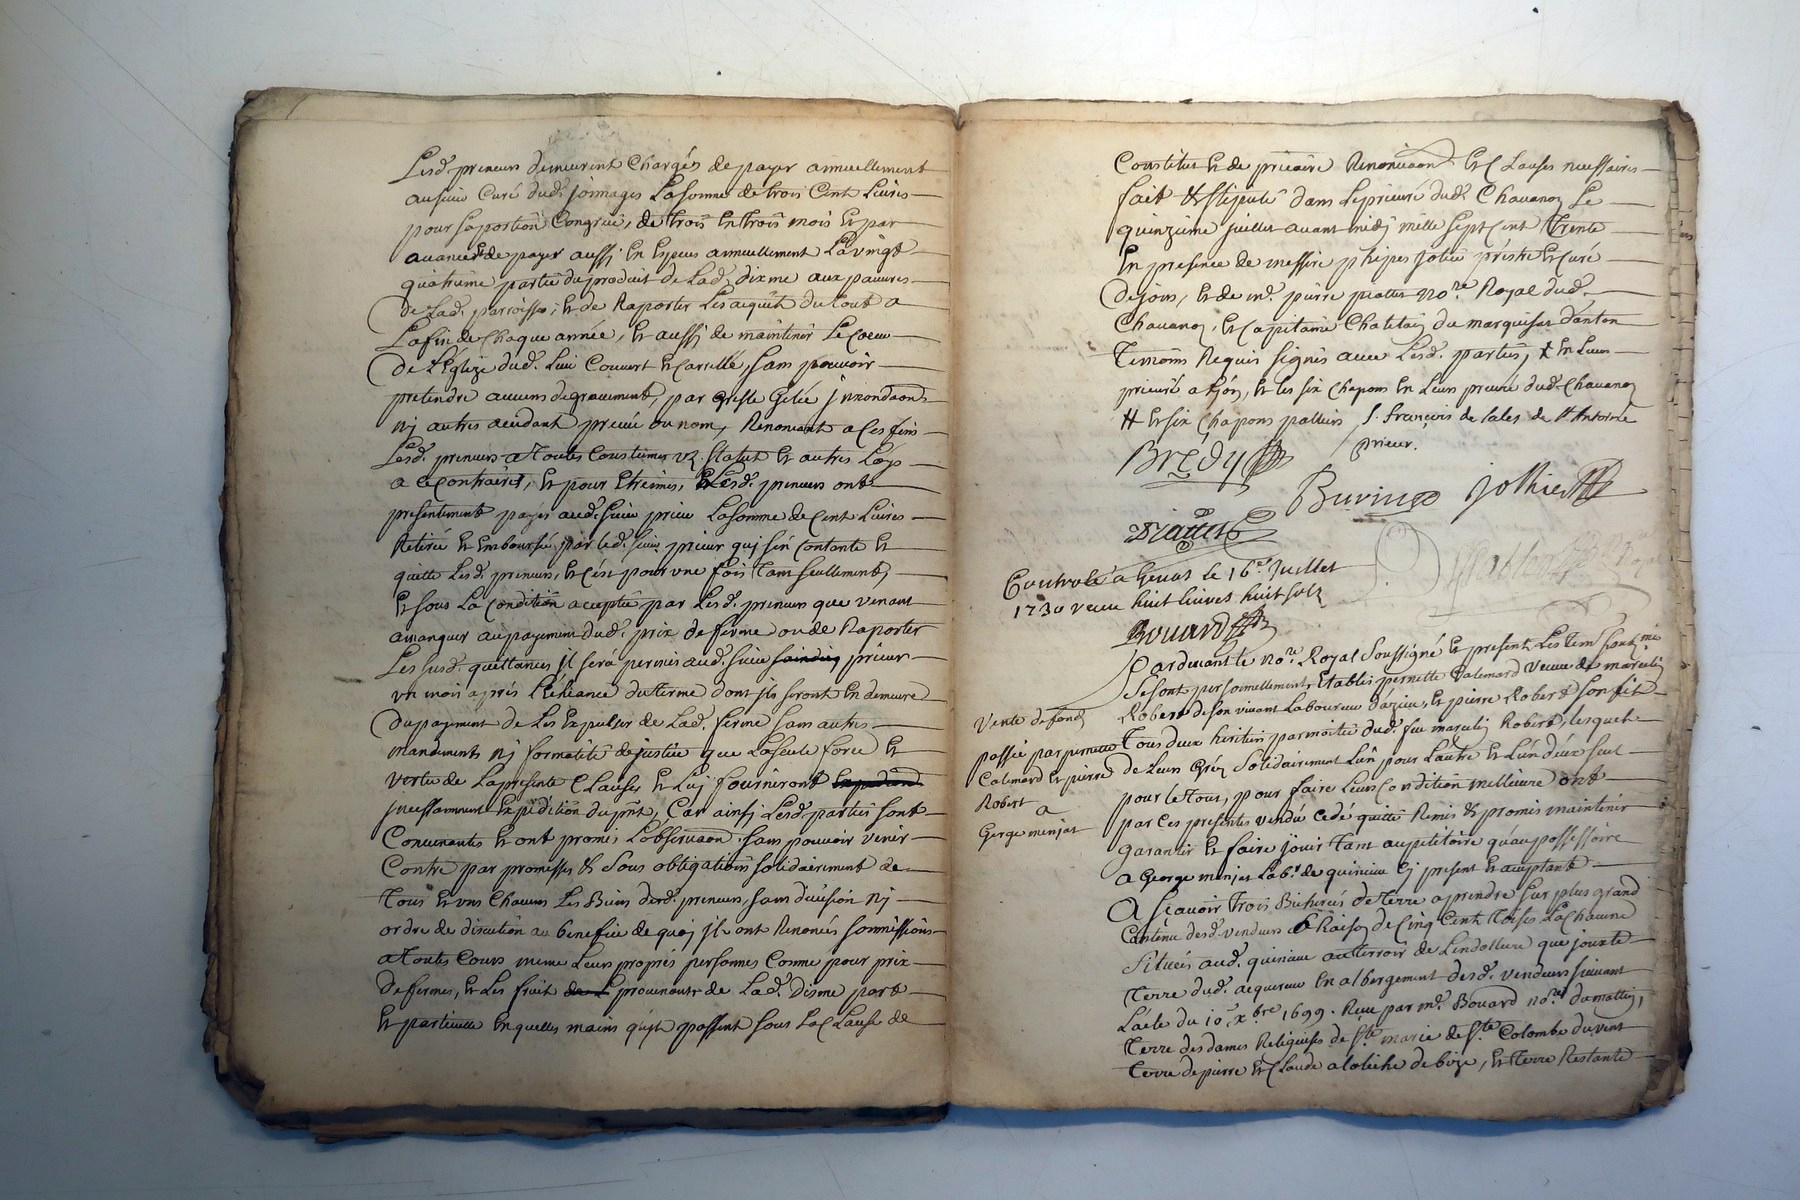 Lesd. preneurs demeurent Chargés de payer annuellement
au sieur Curé dud. jonnages La somme de trois Cent Livres
pour sa portion Congrue, de trois En trois mois Et par
avance Et de payer aussj En Especes annuellement La vingt
quatrieme partie du produit de Lad. dixme aux pauvres
De Lad. parroisse, Et de Raporter Les acquits du tout a
La fin de Chaque année, Et aussi de maintenir Le Coeur
De L'Eglize dud. Lieu Couvert Et Carrellé, sans pouvoir
pretendre aucuns degrauement, par Gresle Gelée jnnondaons
nj autres accidant préuû ou non, Renonçant a Ces fins
Lesd. preneurs a toutes Coustumes us. Statut Et autres Loys
a Ce Contraires, Et pour Etreines, Lesd. preneurs ont
presentement payer aud. sieur prieur La somme de Cent Livres
Retirée Et Emboursée par led. sieur prieur quj s'en Contante Et
quitte Lesd. preneurs, Et c'est pour une fois tant seullement,
Et sous La Condition aceptée par Lesd. preneurs que venant
a manquer au payement dud. prix de ferme ou de Raporter
Les susd. quittances jl sera permis aud. sieur prieur
un mois aprés L'échéance du terme dont jls seront En demeure
Du payement de Les Expulser de Lad. ferme sans autres
mandements nj formalité de justice que La seule force Et
vertu de La presente Clauses Et Luj fourniront
jncessamment Expedition du pnt, Car ainsj Lesd. parties sont
Convenantes Et ont promis L'observaon sans pouvoir venir
Contre par promesses & sous obligations solidairement de
Tous Et uns Chacuns Les Biens desd. preneurs, sans division nj
ordre de discution au benefice de quoj jls ont Renoncés sommissions
a toutes Cours meme Leurs propres personnes Comme pour prix
de fermes, Et Les fruit provenants de Lad. Disme part
Et partieulle En quelles mains qu'jls passent sous La Clause de
Constitut Et de précaire Renonciaon Et Clauses necessaires
fait & stipulé dans Le prieuré dud. Chavanoz Le
quinzieme juillet avant midj mille sept Cent Trente
En presence de messire phipes jolié prestre Et Curé
De jons, Et de me. pierre no.re Royal dud.
Chavanoz, Et Capitaine Chatelain du marquisat d'anton
Temoins Requis signés avec Lesd. parties, Et En Leur
prieuré a Et les six Chapons En Leurs prieuré dud. Chavanoz
# Et six Chapons f. françois de sales de St Antoine
prieur.
Brédy
Jolliet
Controlé a le 16e Juillet
1730 huit livres huit sols
Bouard
Pardevant le no.re Royal soussigné Et present Les tem
se sont personnellement Etablis pernette Calemard veuve de marcelin
Robert de son vivant Laboureur d'azieu, Et pierre Robert son fils
Tous deux heritiers par moitié dud. feu marcelin Robert, lesquels
de Leurs Gréz solidairement L'un pour L'autre Et L'un d'eux seul
pour le tout, pour faire Leurs Condition meilleure ont
par Ces presentes vendû Cedé quitté Remis & promis maintenir
Garantir Et faire jouir tant au petitoire qu'au possessoire
a George menjat Lab.r de quincieu Cj present Et aceptant
A sçavoir trois Bicherées de Terre a prendre sur plus grand
Contenu desd. vendeurs a Raison de Cinq Cent Toises La Chacune
Situées aud. quincieu au terroir de que jouxte
Terre dud. acquereur En albergement desd. vendeurs suivant
L'acte du 10e xbre 1699. Reçu par me. Bouard no.re
Terre des dames Religieuses de Ste marie de Ste Colombe du vent
Terre de pierre Et Claude de bize, Et Terre Restante
Vente de fond
passée par pernette
Calemard Et pierre
Robert
a
George menjat